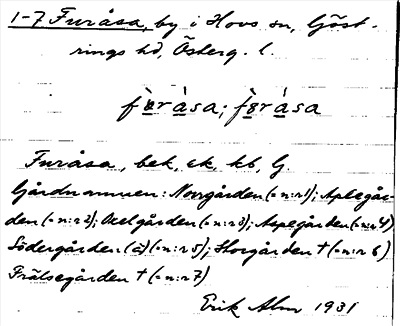 1-7 Furåsa, by i Hovs sn, Göst-
rings hd, Österg. l.
Furåsa, bek, ek, kb, G.
Gårdnamnen: Norrgården (=n:r 1); Aplegår-
den (=n:r 2); Oxelgården (=n:r 3); Aspegården (=n:r 4)
Södergården (=n:r 5); Storgården † (=n:r 6)
Frälsegården † (=n:r 7)
Erik Alm 1931